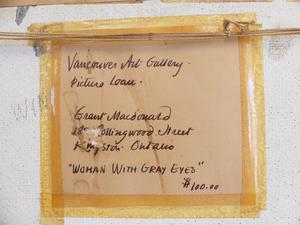 Vancouver Art Gallery -
Picture Loan.
Grant Macdonald
Collingwood Street
Kingston. Ontario
"WOMAN WITH GRAY EYES"
$100.00